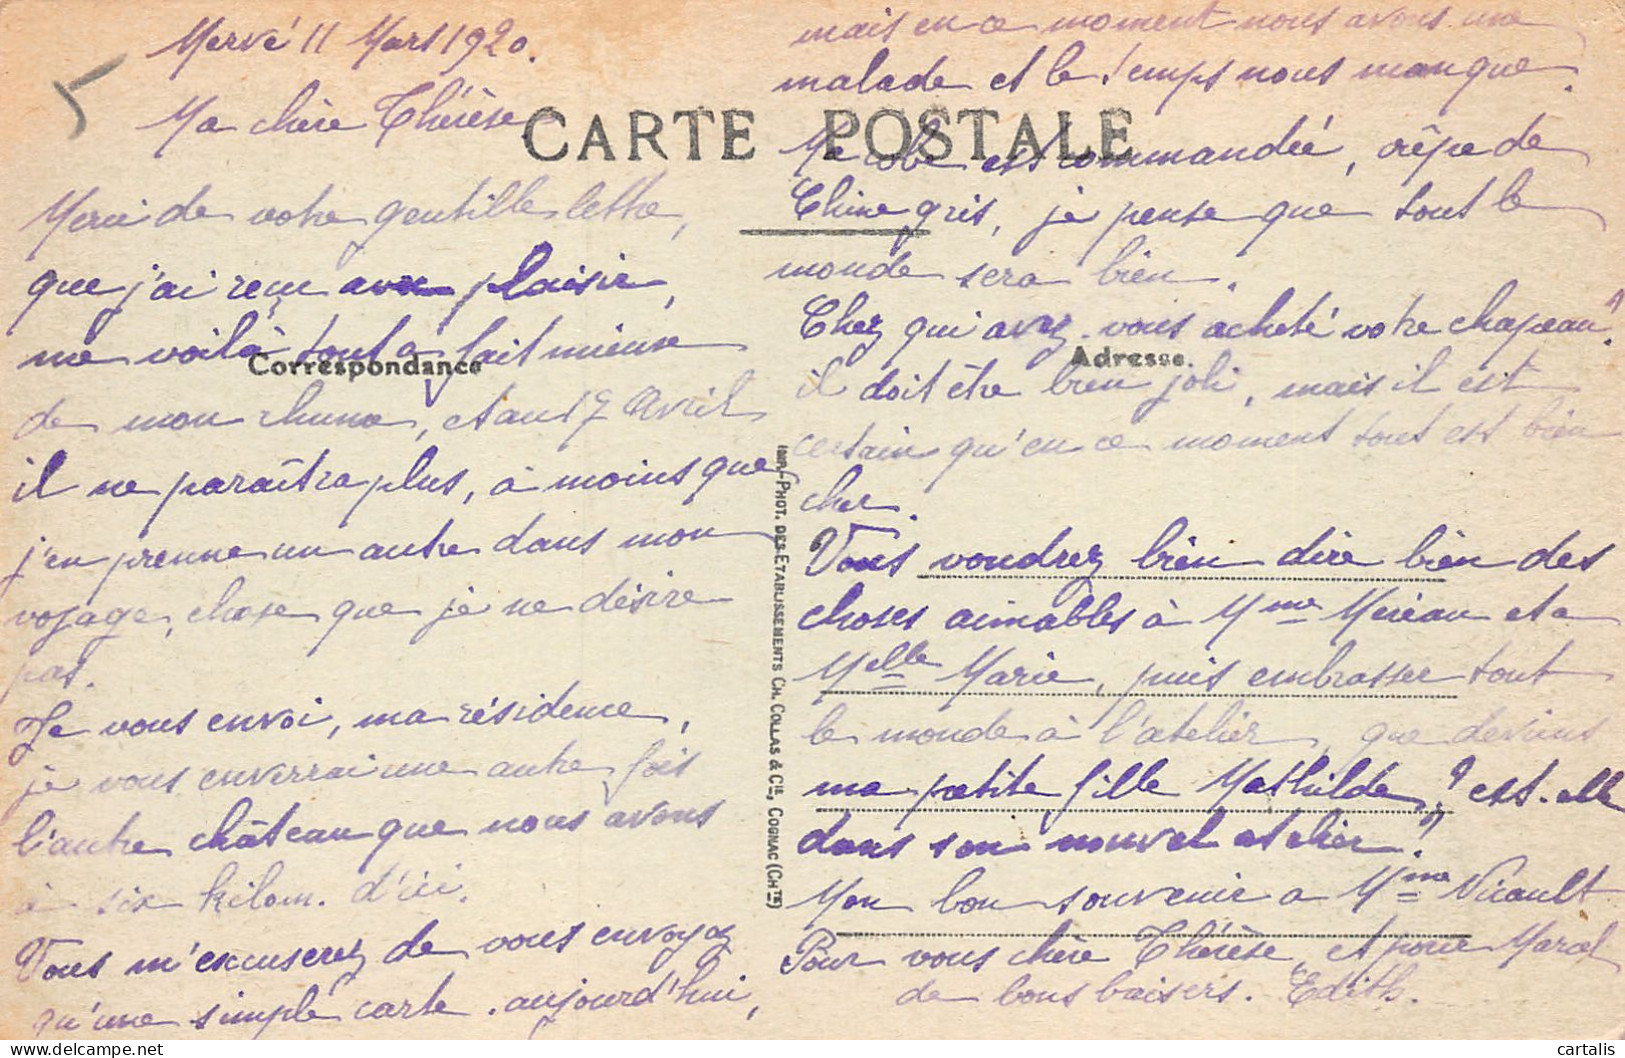 Mervé 11 Mars 1920.
Ma chère Thérèse,
Merci de votre gentille lettre,
que j'ai reçu avec plaisir,
me voilà tout à fait mieux
de mon rhume, et au 17 Avril
il ne paraîtra plus, à moins que
j'en prenne un autre dans mon
voyage, chose que je ne désire
pas.
Je vous envoi, ma résidence,
je vous enverrai une autre fois
l'autre château que nous avons
à six kilom. d'ici.
Vous m'excuserez de vous envoyez
qu'une simple carte aujourd'hui,
mais en ce moment nous avons une
malade et le temps nous manque.
Ma robe est commandée, crêpe de
Chine gris, je pense que tout le
monde sera bien.
Chez qui avez-vous acheté votre chapeau?
il doit être bien joli, mais il est
certain qu'en ce moment tout est bien
cher.
Vous voudrez bien dire bien des
choses aimables à Mme Mereau et a
Melle Marie, puis embrasser tout
le monde à l'atelier, que deviens
ma petite fille Mathilde? est-elle
dans son nouvel atelier?
Mon bon souvenir a Mme Nicault
Pour vous chère Thérèse, et pour Marcel
de bons baisers. Edith.
CARTE POSTALE
Correspondance
Adresse.
IMP.-PHOT. DES ETABLISSEMENTS CH. COLLAS & CIE, COGNAC (CHTE)
cartalis